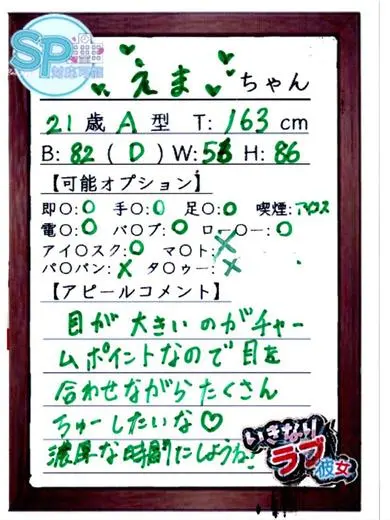 SP
対応可能
えま ちゃん
21歳 A型 T:163cm
B:82(D)W:56 H:86
【可能オプション】
即〇:○ 手〇:○ 足〇:○ 喫煙:アイコス
電〇:○ バ〇ブ:○ ロー〇ー:○
アイ〇スク:○ マ〇ト:×
パ〇パン:× タ〇ゥー:×
【アピールコメント】
目が大きいのがチャー
ムポイントなので目を
合わせながらたくさん
ちゅーしたいな♡
濃厚な時間にしようね!
いきなり
ラブ
彼女